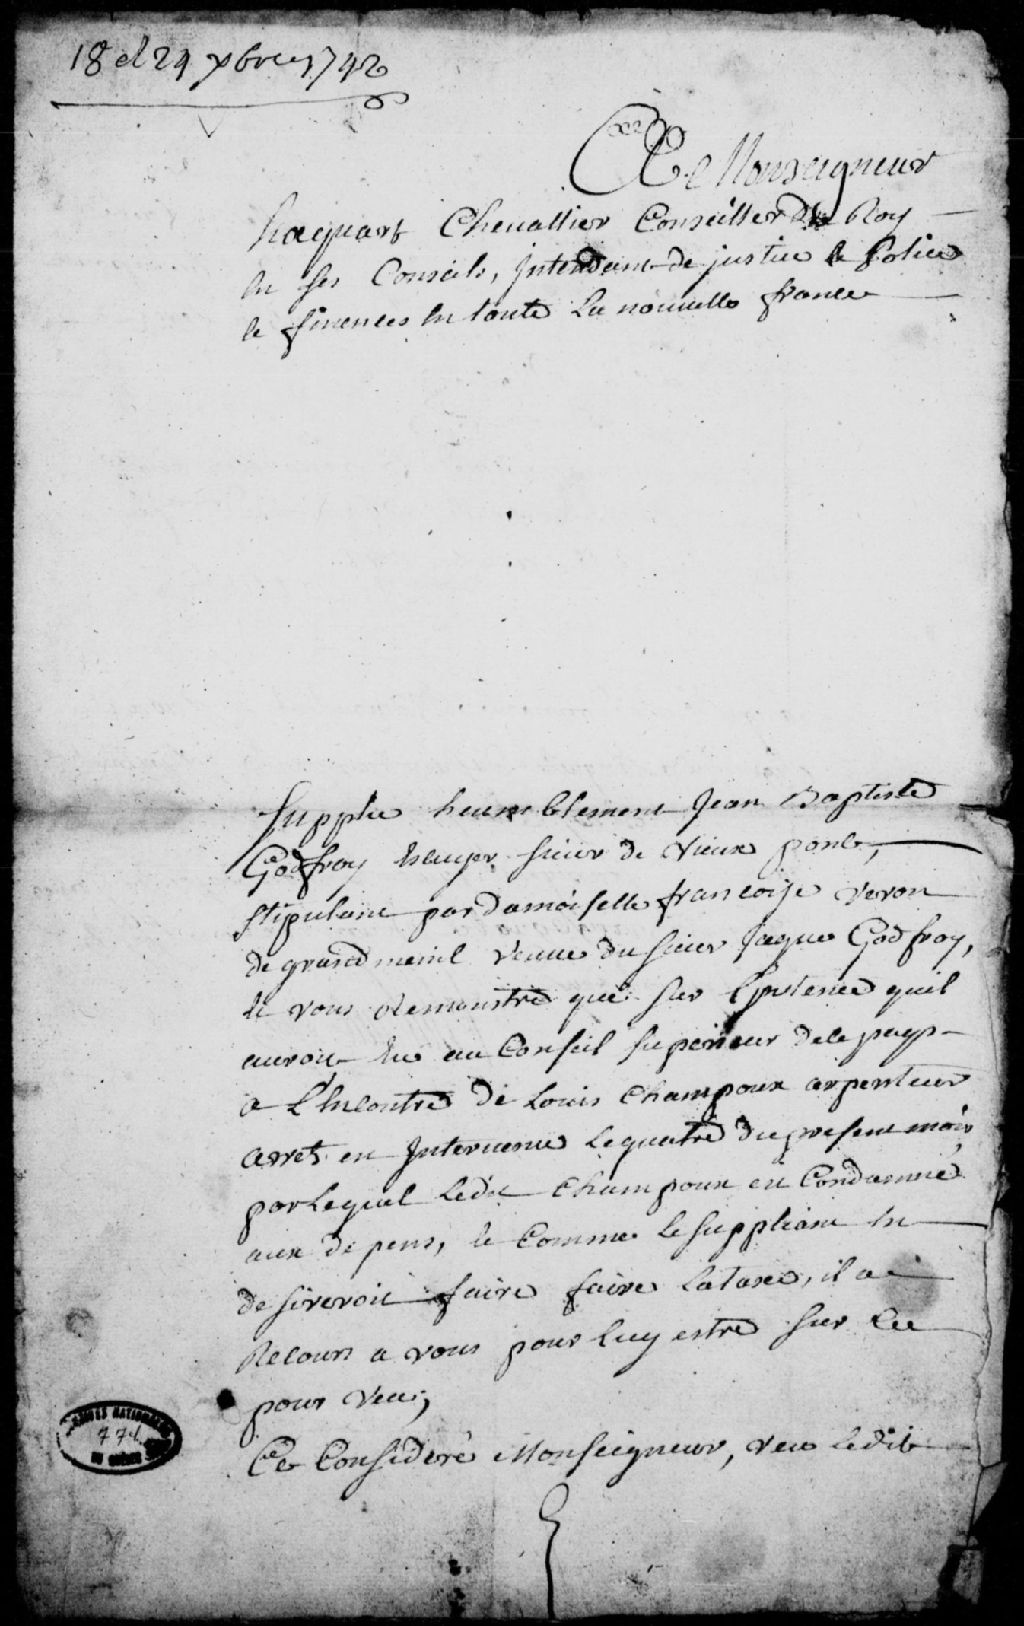 18 et 24 xbre 1742
A Monseigneur
hocquart Chevallier Conseiller du Roy
En ses Conseils, Intendant de justice & police
& finences En toute La nouvelle france
Supplie heumblement Jean Baptiste
Godfroy Escuyer sieur de vieux pont,
stipulant par damoiselle francoise veron
de grandmenil veuve du sieur Jaque Godfroy,
Et vous Remonstre que sur Linstence quil
auroit Eue au Conseil superieur de ce pays
a L'Encontre de Louis Champoux arpenteur
arret en Intervenue Le quatre du present mois
par Lequel Ledit Champoux est Condamné
aux depens, & Comme Le supliant En
desireroit faire faire La taxe, il a
Recours a vous pour Luy estre sur Ce
pourveu,
Ce Consideré Monseigneur, veu Ledit
774